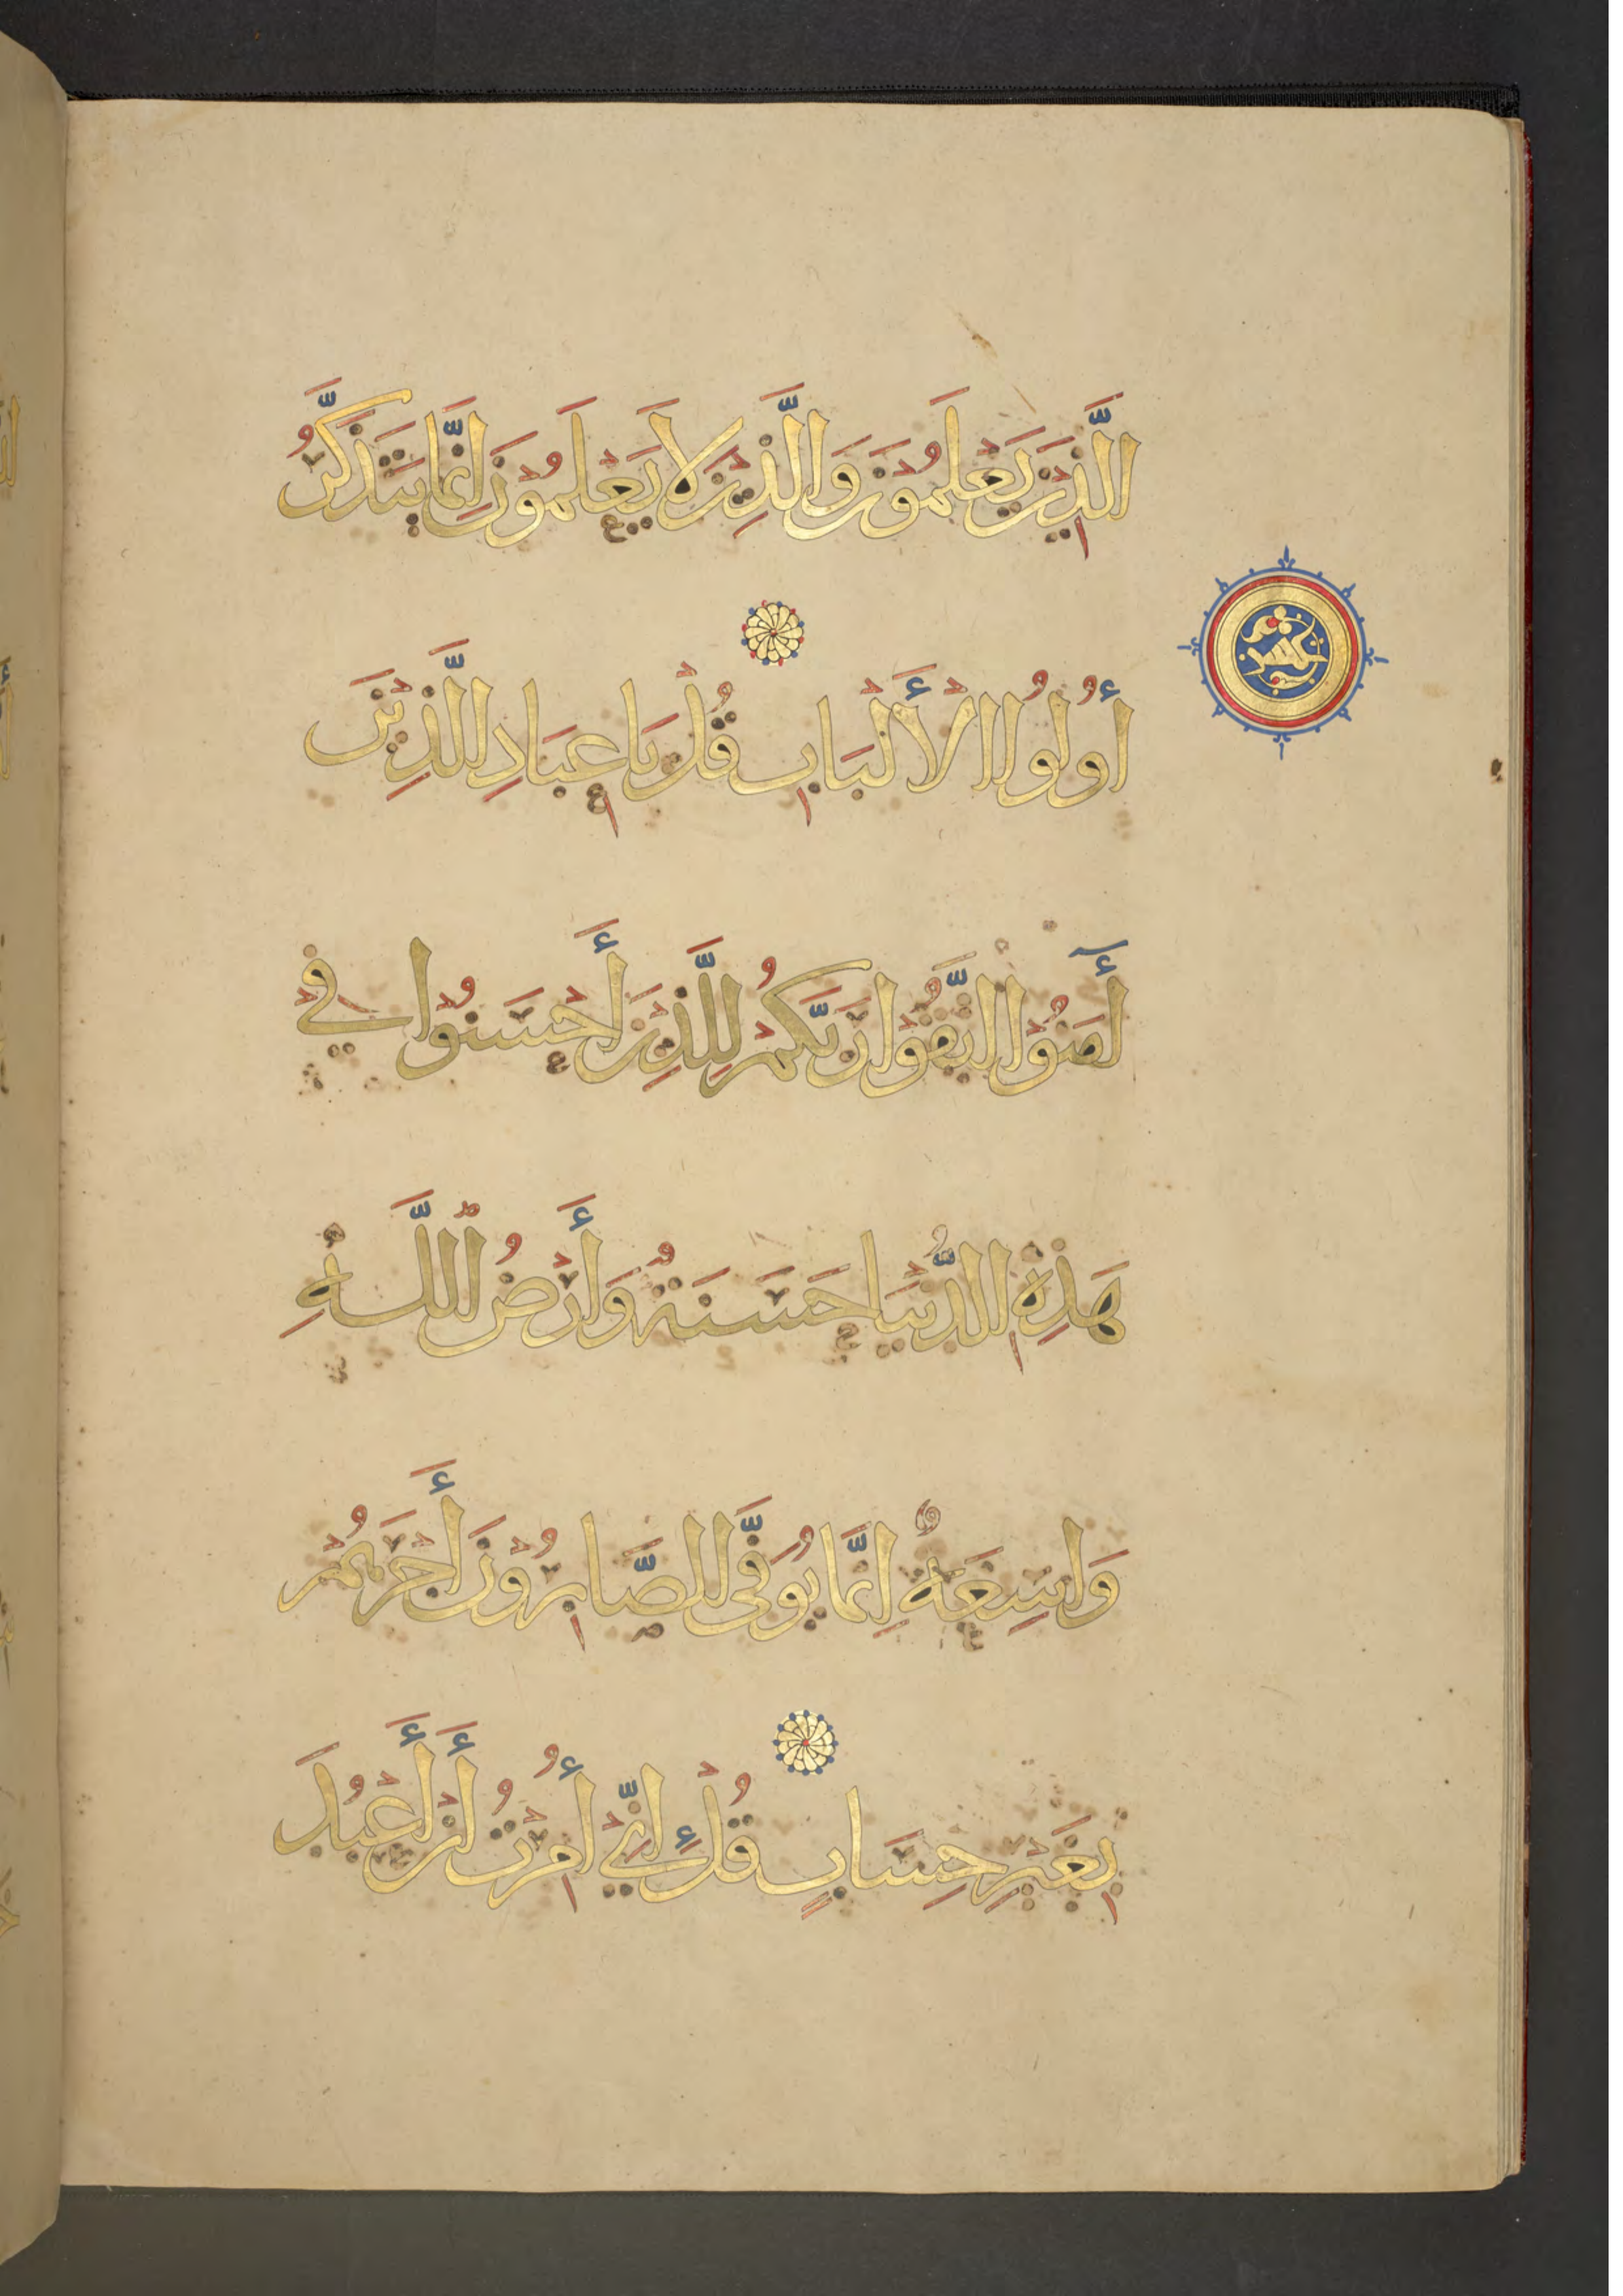 الَّذِينَ يَعْلَمُونَ وَالَّذِينَ لَا يَعْلَمُونَ إِنَّمَا يَتَذَكَّرُ
أُولُوا الْأَلْبَابِ قُلْ يَا عِبَادِ الَّذِينَ
أَمَنُوا اتَّقُوا رَبَّكُمْ لِلَّذِينَ أَحْسَنُوا فِي
هَذِهِ الدُّنْيَا حَسَنَةٌ وَأَرْضُ اللَّهِ
وَاسِعَةٌ إِنَّمَا يُوَفَّى الصَّابِرُونَ أَجْرَهُمْ
بِغَيْرِ حِسَابٍ قُلْ إِنِّي أُمِرْتُ أَنْ أَعْبُدَ